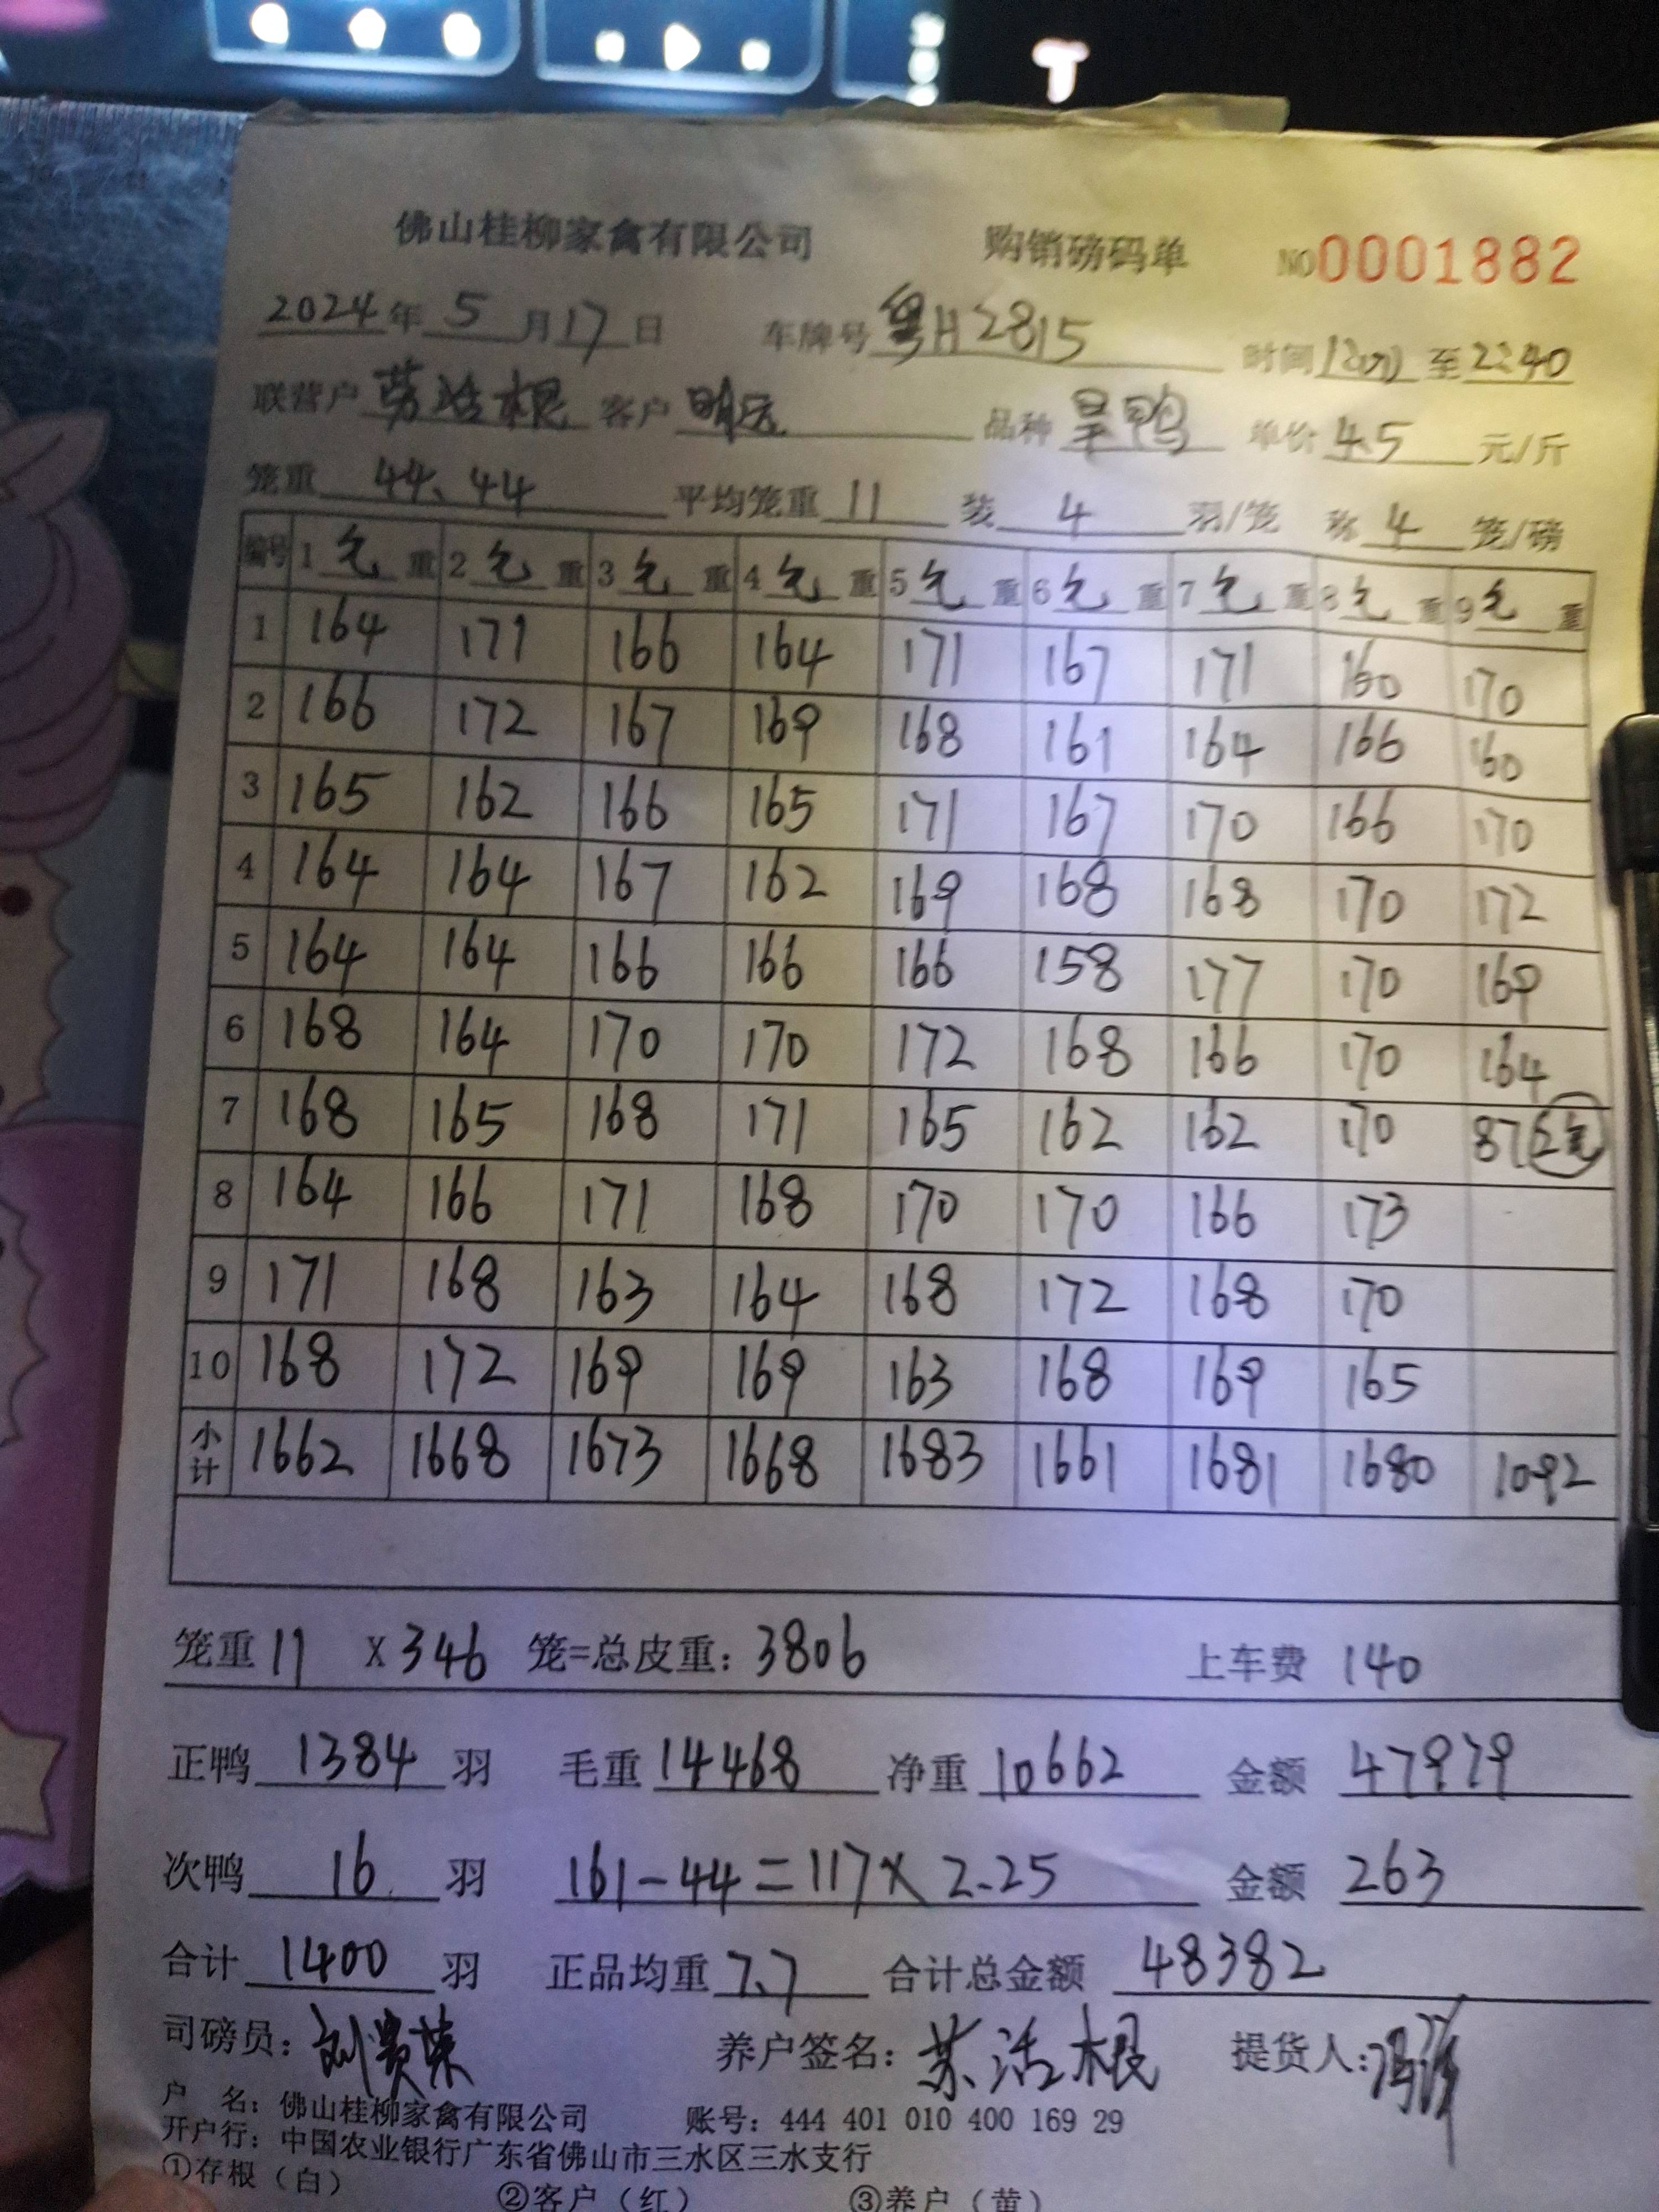 佛山桂柳家禽有限公司 购销磅码单 NO0001882
2024年5月17日 车牌号粤H2815 时间 至22:40
联营户 客户明远 品种旱鸭 单价4.5元/斤
笼重44、44 平均笼重11 装4羽/笼 称4笼/磅
编号 1毛重 2毛重 3毛重 4毛重 5毛重 6毛重 7毛重 8毛重 9毛重
1 164 171 166 164 171 167 171 160 170
2 166 172 167 169 168 161 164 166 160
3 165 162 166 165 171 167 170 166 170
4 164 164 167 162 169 168 168 170 172
5 164 164 166 166 166 158 177 170 169
6 168 164 170 170 172 168 166 170 164
7 168 165 168 171 165 162 162 170 87
8 164 166 171 168 170 170 166 173
9 171 168 163 164 168 172 168 170
10 168 172 169 169 163 168 169 165
小计 1662 1668 1673 1668 1683 1661 1681 1680 1092
笼重11 X346 笼=总皮重:3806 上车费 140
正鸭1384羽 毛重14468 净重10662 金额47979
次鸭16羽 161-44=117×2.25 金额263
合计1400羽 正品均重7.7 合计总金额48382
司磅员:刘贵荣 养户签名: 提货人:
户 名:佛山桂柳家禽有限公司 账号:444 401 010 400 169 29
开户行:中国农业银行广东省佛山市三水区三水支行
①存根(白) ②客户(红) ③养户(黄)